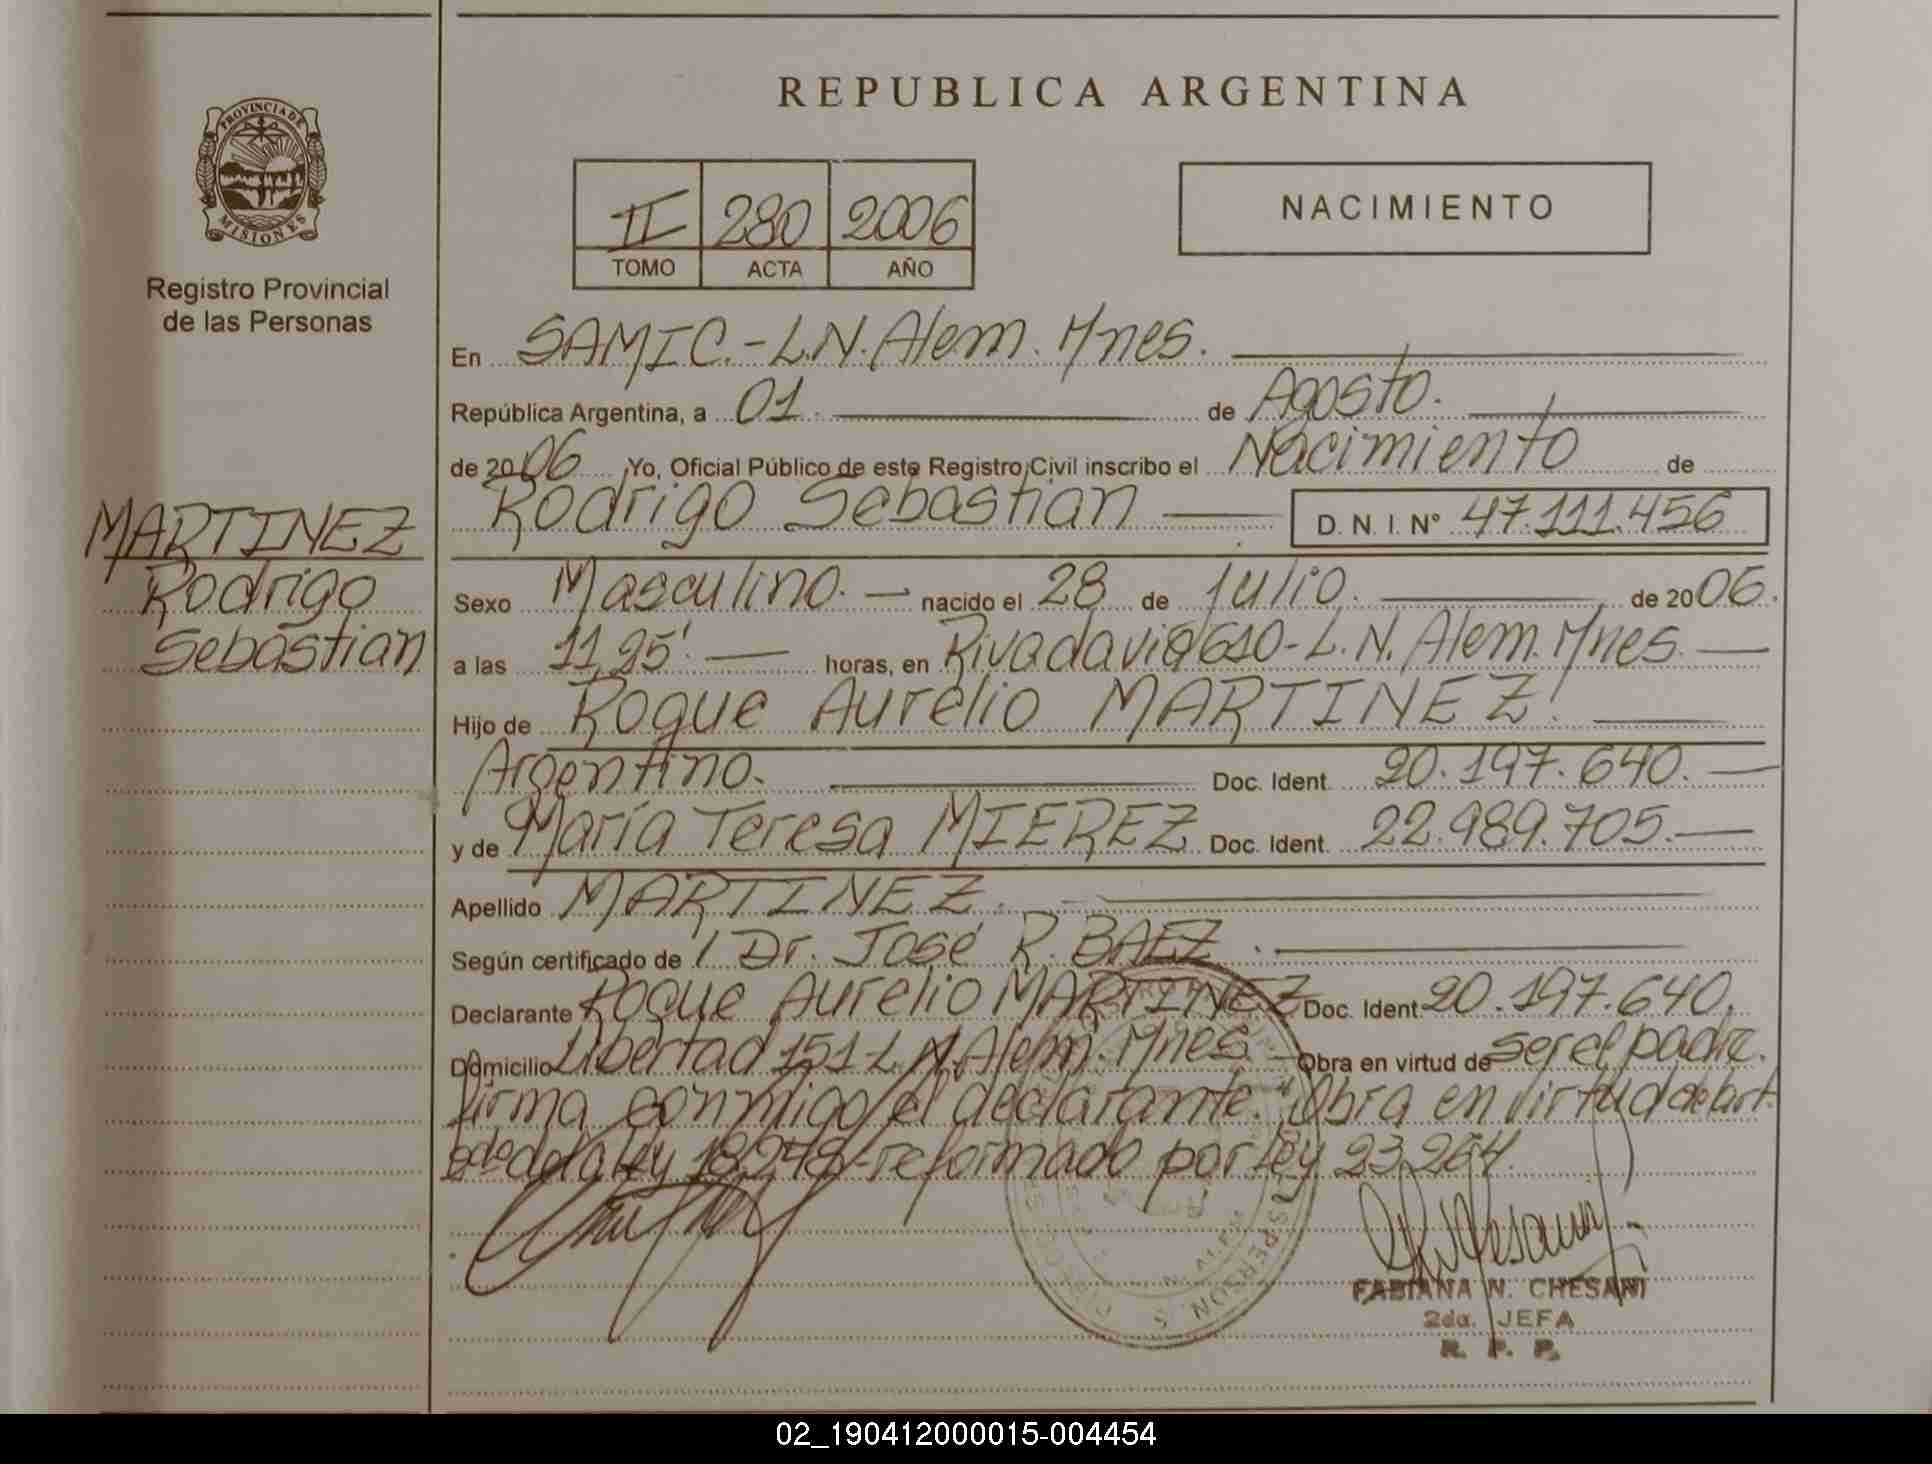 REPUBLICA ARGENTINA
PROVINCIA DE
MISIONES
Registro Provincial
de las Personas
II 280 2006
TOMO ACTA AÑO
NACIMIENTO
En SAMIC.-L.N.Alem. Mnes.
República Argentina, a 01. de Agosto.
de 2006 Yo, Oficial Público de este Registro Civil inscribo el Nacimiento de
Rodrigo Sebastian D. N. I. N° 47.111.456
MARTINEZ
Rodrigo
Sebastian
Sexo Masculino. nacido el 28 de julio. de 2006.
a las 11,25'. horas, en Rivadavia 610-L.N. Alem. Mnes.
Hijo de Roque Aurelio MARTINEZ.
Argentino. Doc. Ident. 20.197.640.
y de María Teresa MIEREZ Doc. Ident. 22.989.705.
Apellido MARTINEZ.
Según certificado de Dr. José R. BAEZ.
Declarante Roque Aurelio MARTINEZ Doc. Ident. 20.197.640.
Domicilio Libertad 151-L.N.Alem. Mnes. Obra en virtud de ser el padre.
firma conmigo el declarante. Obra en virtud de art.
2do de la ley 18.248-reformado por ley 23.264.
FABIANA N. CHESANI
2da. JEFA
R. P. P.
02_190412000015-004454